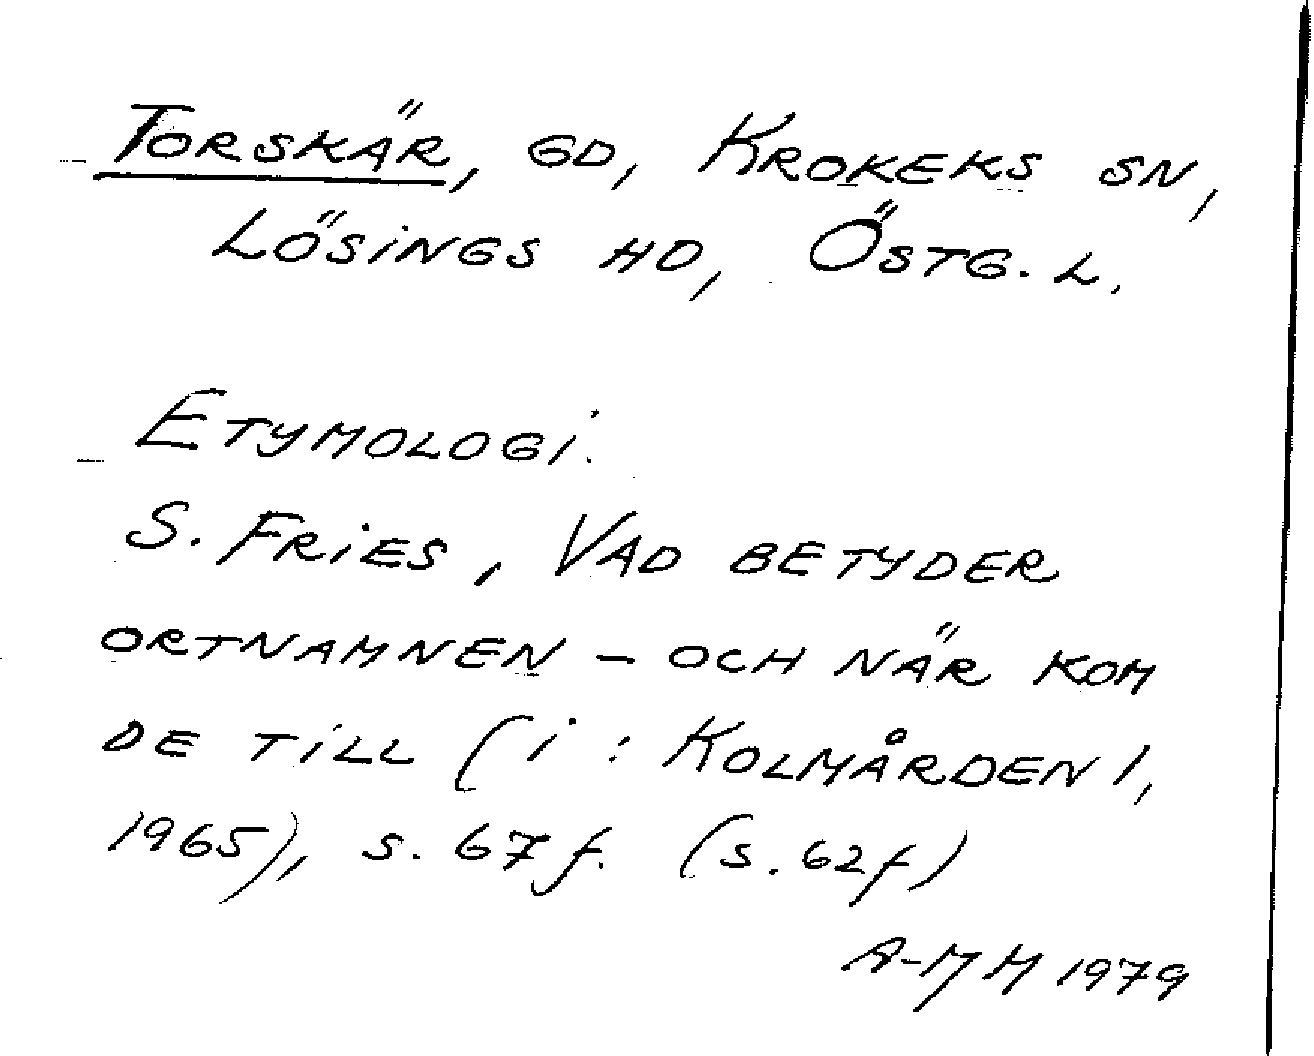 Torskär, gd, Krokeks sn,
Lösings hd, Östg. L.
Etymologi.
S. Fries, Vad betyder
ortnamnen – och när kom
de till (i: Kolmården 1,
1965), s. 67 f. (s. 62 f)
A-MM 1979